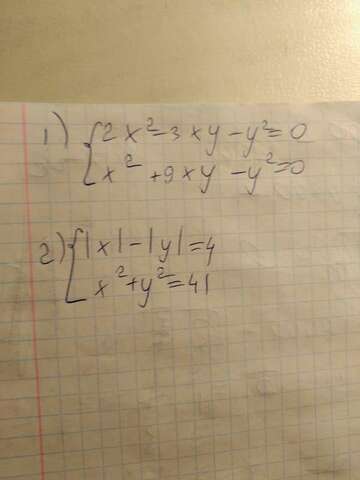 1) { 2x²-3xy-y²=0
x²+9xy-y²=0
2) { |x|-|y|=4
x²+y²=41